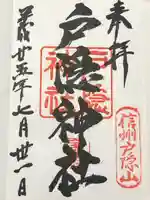 奉拝
戸隠神社
平成廿五年七月廿一日
信州戸隠山